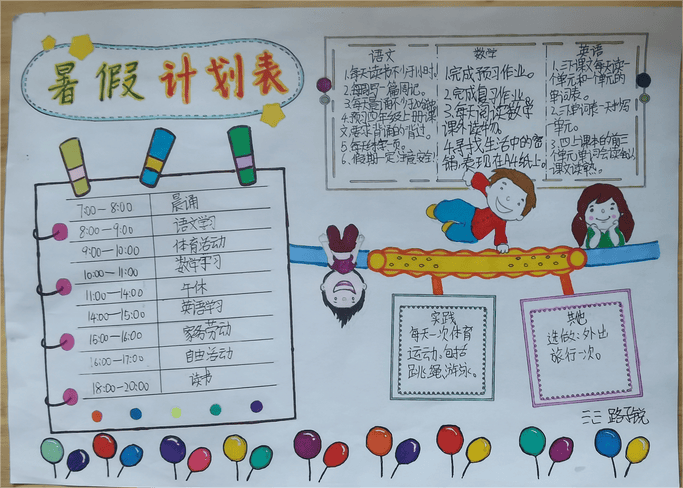 暑假计划表
7:00—8:00 晨诵
8:00—9:00 语文学习
9:00—10:00 体育活动
10:00—11:00 数学学习
11:00—14:00 午休
14:00—15:00 英语学习
15:00—16:00 家务劳动
16:00—17:00 自由活动
18:00—20:00 读书
语文
1.每天读书不少于1小时
2.每周写一篇周记。
3.每天晨诵不少于
4.预习四年级上册课
文,要求背诵的背过。
5.每天练字一页。
6.假期一定注意安全!
数学
1.完成预习作业。
2.完成复习作业。
3.每天阅读数学
课外读物。
4.寻找生活中的
,表现在A4纸上。
英语
1.三下课文每天读一
个单元和一个单元的
单词表。
2.三下单词表一天抄写一
单元。
3.四上课本的前三
个单元单词会读会认
课文读熟。
实践
每天一次体育
运动。包括
跳绳、游泳。
其他
选做:外出
旅行一次。
三三 路子锐